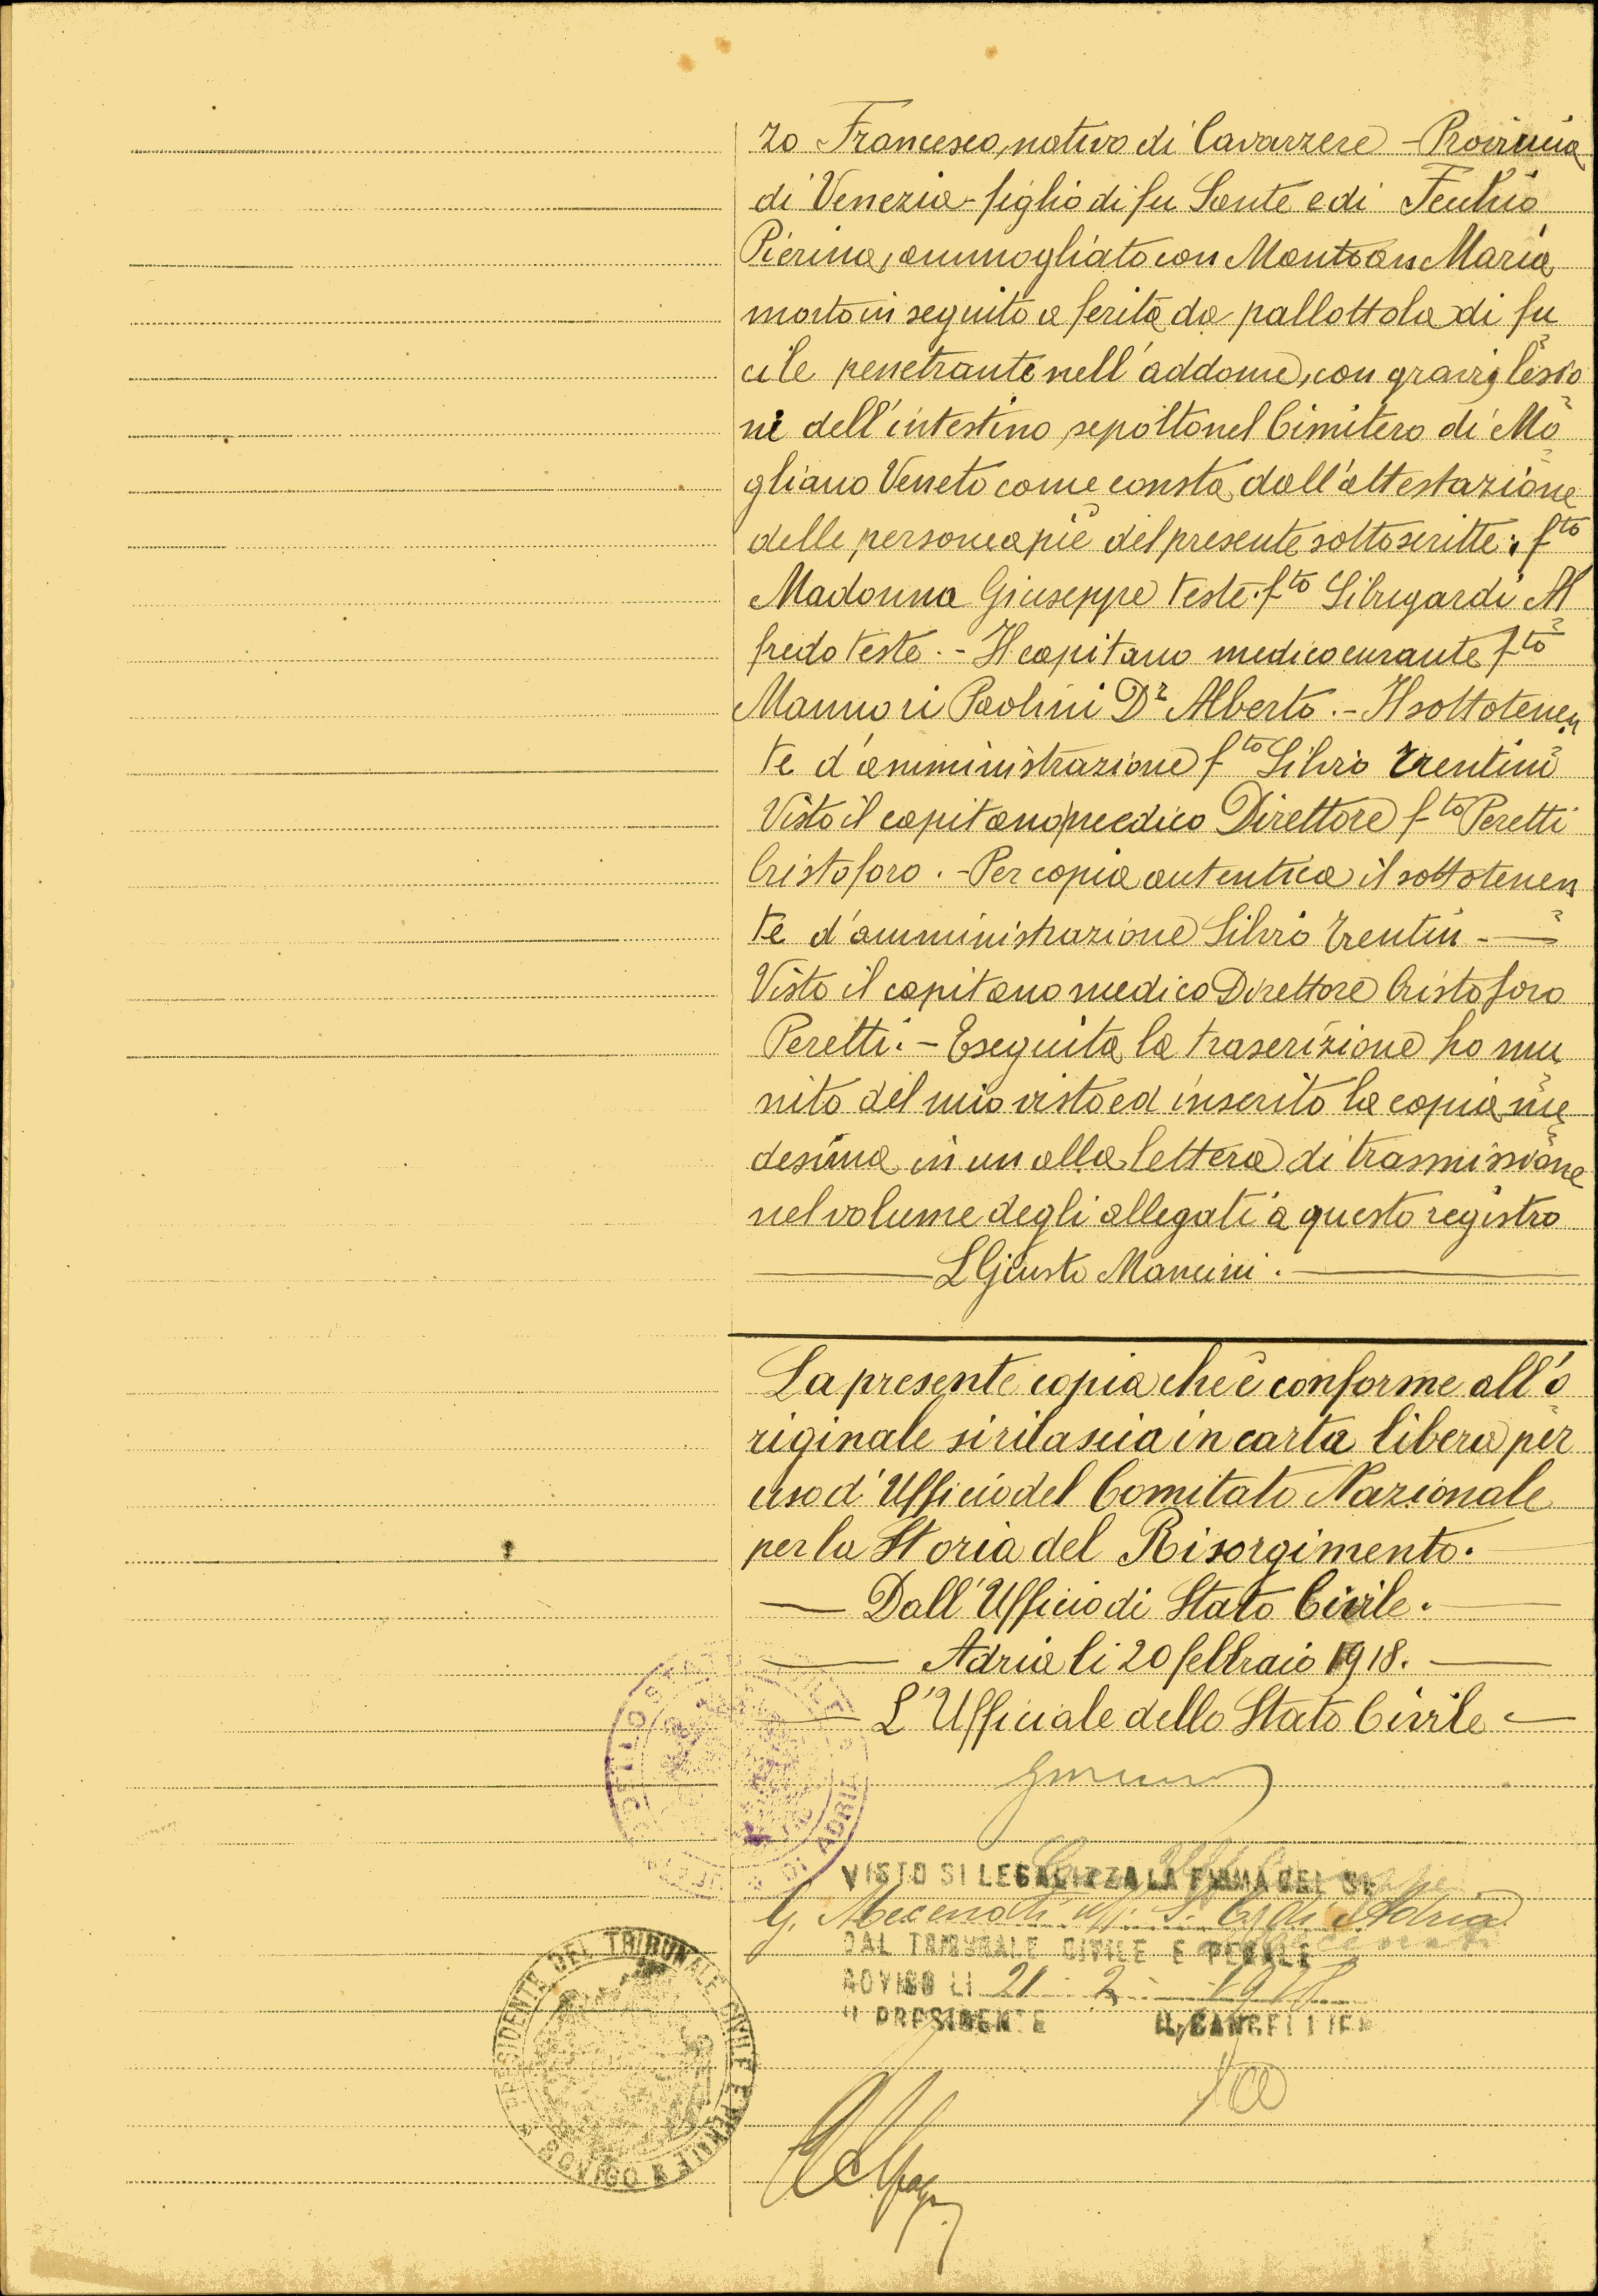 zo Francesco, nativo di Cavarzere - Provincia
di Venezia - figlio di fu Sante e di Fecchio
Pierina, ammogliato con Mantoan Maria
morto in seguito a ferita da pallottola di fu
cile penetrante nell'addome, con gravi lesio
ni dell'intestino, sepolto nel Cimitero di Mo
gliano Veneto come consta dall'attestazione
delle persone a piè del presente sottoscritte: fto
Madonna Giuseppe teste. fto Sibrigardi Al
fredo teste. - Il capitano medico curante fto
Mannori Paolini Dr Alberto. - Il sottotenen
te d'amministrazione fto Silvio Trentini
Visto il capitano medico Direttore fto Peretti
Cristoforo. - Per copia autentica il sottotenen
te d'amministrazione Silvio Trentin -
Visto il capitano medico Direttore Cristoforo
Peretti. - Eseguita la trascrizione ho mu
nito del mio visto ed inserito la copia me
desima in un alla lettera di trasmissione
nel volume degli allegati a questo registro
LGiusto Mancini.
La presente copia che è conforme all'o
riginale si rilascia in carta libera per
uso d'Ufficio del Comitato Nazionale
per la Storia del Risorgimento.
Dall'Ufficio di Stato Civile.
Adria li 20 febbraio 1918.
L'Ufficiale dello Stato Civile
DELLO STATO CIVILE DI ADRIA
VISTO SI LEGALIZZA LA FIRMA DEL SE
G. Mecenati uff. S. C. di Adria
DAL TRIBUNALE CIVILE E PENALE
ROVIGO LI 21 - 2 - 1918
IL PRESIDENTE IL CANCELLIER
PRESIDENTE DEL TRIBUNALE CIVILE E PENALE ROVIGO